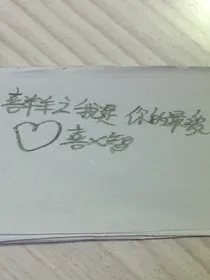 喜羊羊之我是你的最爱
喜×智